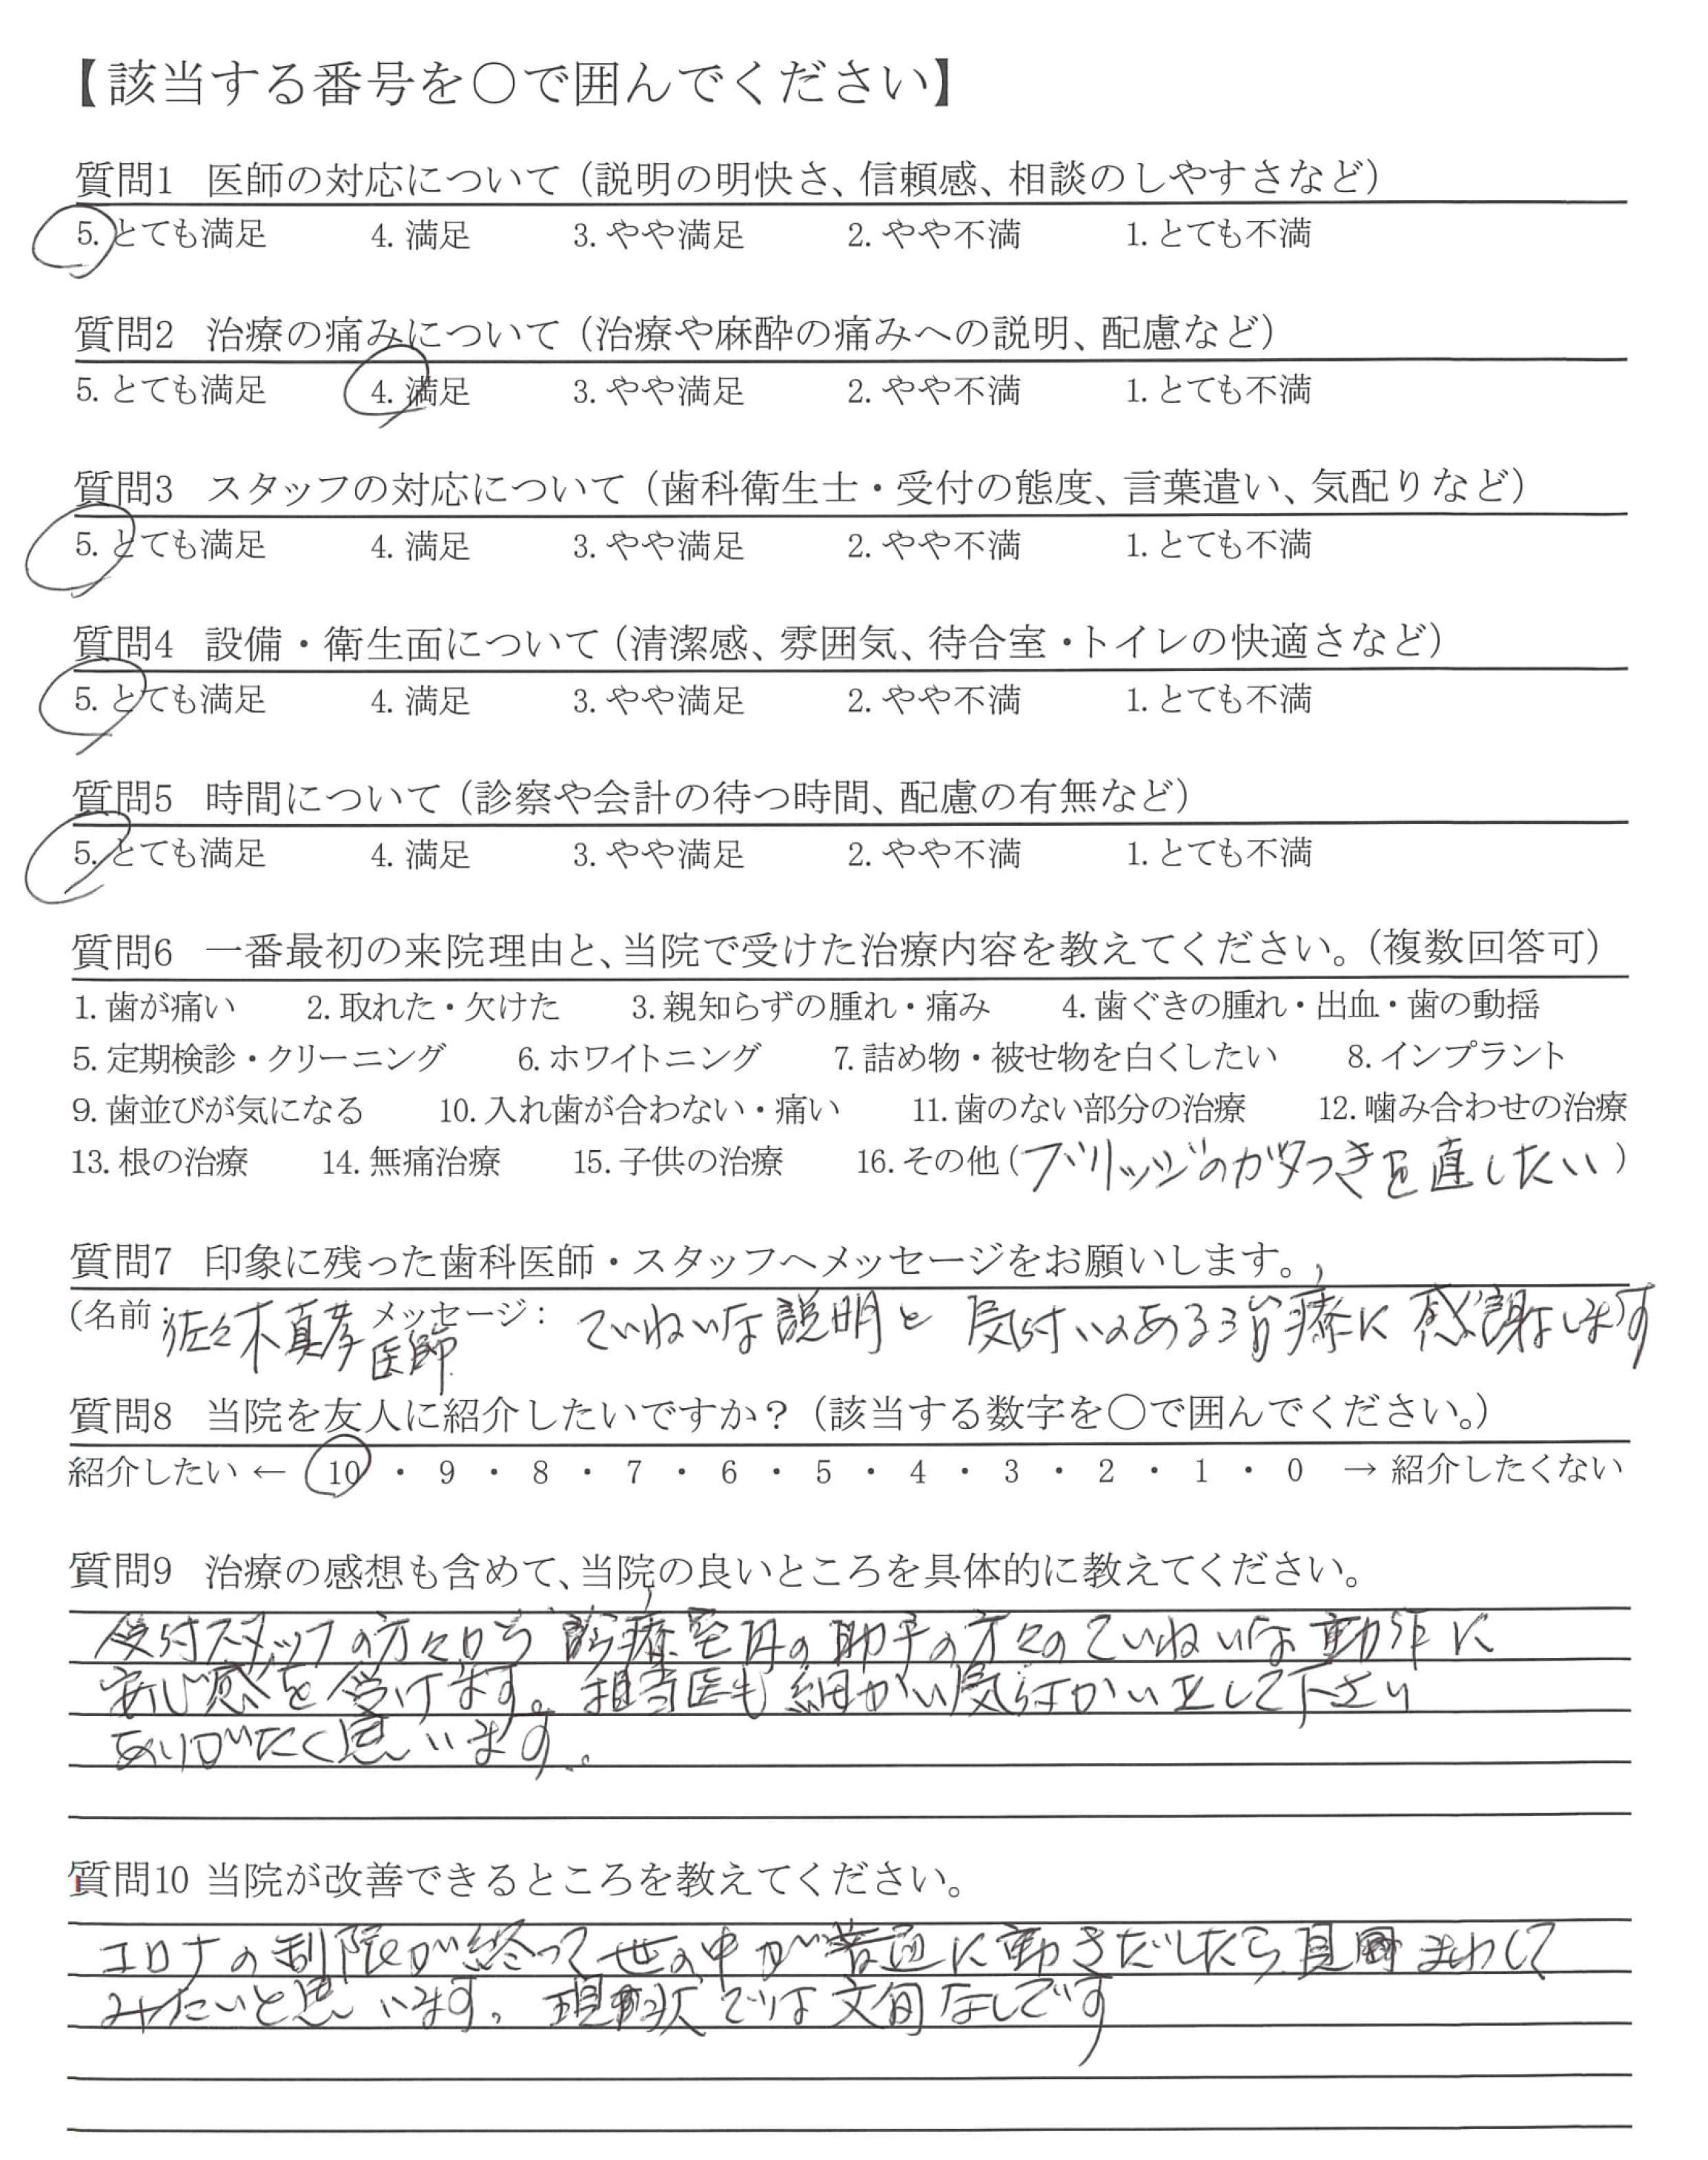 【該当する番号を○で囲んでください】
質問1 医師の対応について（説明の明快さ、信頼感、相談のしやすさなど）
5. とても満足 4. 満足 3. やや満足 2. やや不満 1. とても不満
質問2 治療の痛みについて（治療や麻酔の痛みへの説明、配慮など）
5. とても満足 4. 満足 3. やや満足 2. やや不満 1. とても不満
質問3 スタッフの対応について（歯科衛生士・受付の態度、言葉遣い、気配りなど）
5. とても満足 4. 満足 3. やや満足 2. やや不満 1. とても不満
質問4 設備・衛生面について（清潔感、雰囲気、待合室・トイレの快適さなど）
5. とても満足 4. 満足 3. やや満足 2. やや不満 1. とても不満
質問5 時間について（診察や会計の待つ時間、配慮の有無など）
5. とても満足 4. 満足 3. やや満足 2. やや不満 1. とても不満
質問6 一番最初の来院理由と、当院で受けた治療内容を教えてください。（複数回答可）
1. 歯が痛い 2. 取れた・欠けた 3. 親知らずの腫れ・痛み 4. 歯ぐきの腫れ・出血・歯の動揺
5. 定期検診・クリーニング 6. ホワイトニング 7. 詰め物・被せ物を白くしたい 8. インプラント
9. 歯並びが気になる 10. 入れ歯が合わない・痛い 11. 歯のない部分の治療 12. 噛み合わせの治療
13. 根の治療 14. 無痛治療 15. 子供の治療 16. その他（ブリッジのガタつきを直したい）
質問7 印象に残った歯科医師・スタッフへメッセージをお願いします。
（名前：佐々木真孝医師 メッセージ： ていねいな説明と気付いのある治療に感謝します
質問8 当院を友人に紹介したいですか？（該当する数字を○で囲んでください。）
紹介したい ← 10 ・ 9 ・ 8 ・ 7 ・ 6 ・ 5 ・ 4 ・ 3 ・ 2 ・ 1 ・ 0 → 紹介したくない
質問9 治療の感想も含めて、当院の良いところを具体的に教えてください。
受付スタッフの方々から診療室内の助手の方々のていねいな動作に
安心感を受けます。担当医も細かい気付かいをして下さり
ありがたく思います。
質問10 当院が改善できるところを教えてください。
コロナの制限が終って世の中が普通に動きだしたら見まわして
みたいと思います。現状では文句なしです